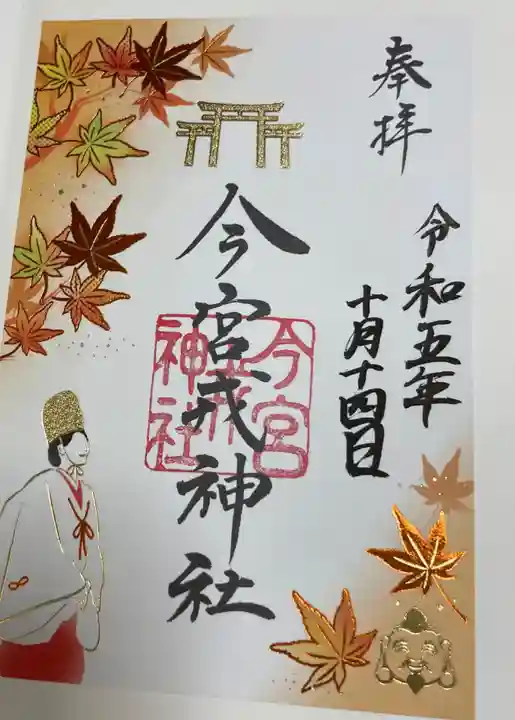 奉拝
令和五年
十月十四日
今宮戎神社
今宮
戎
神社